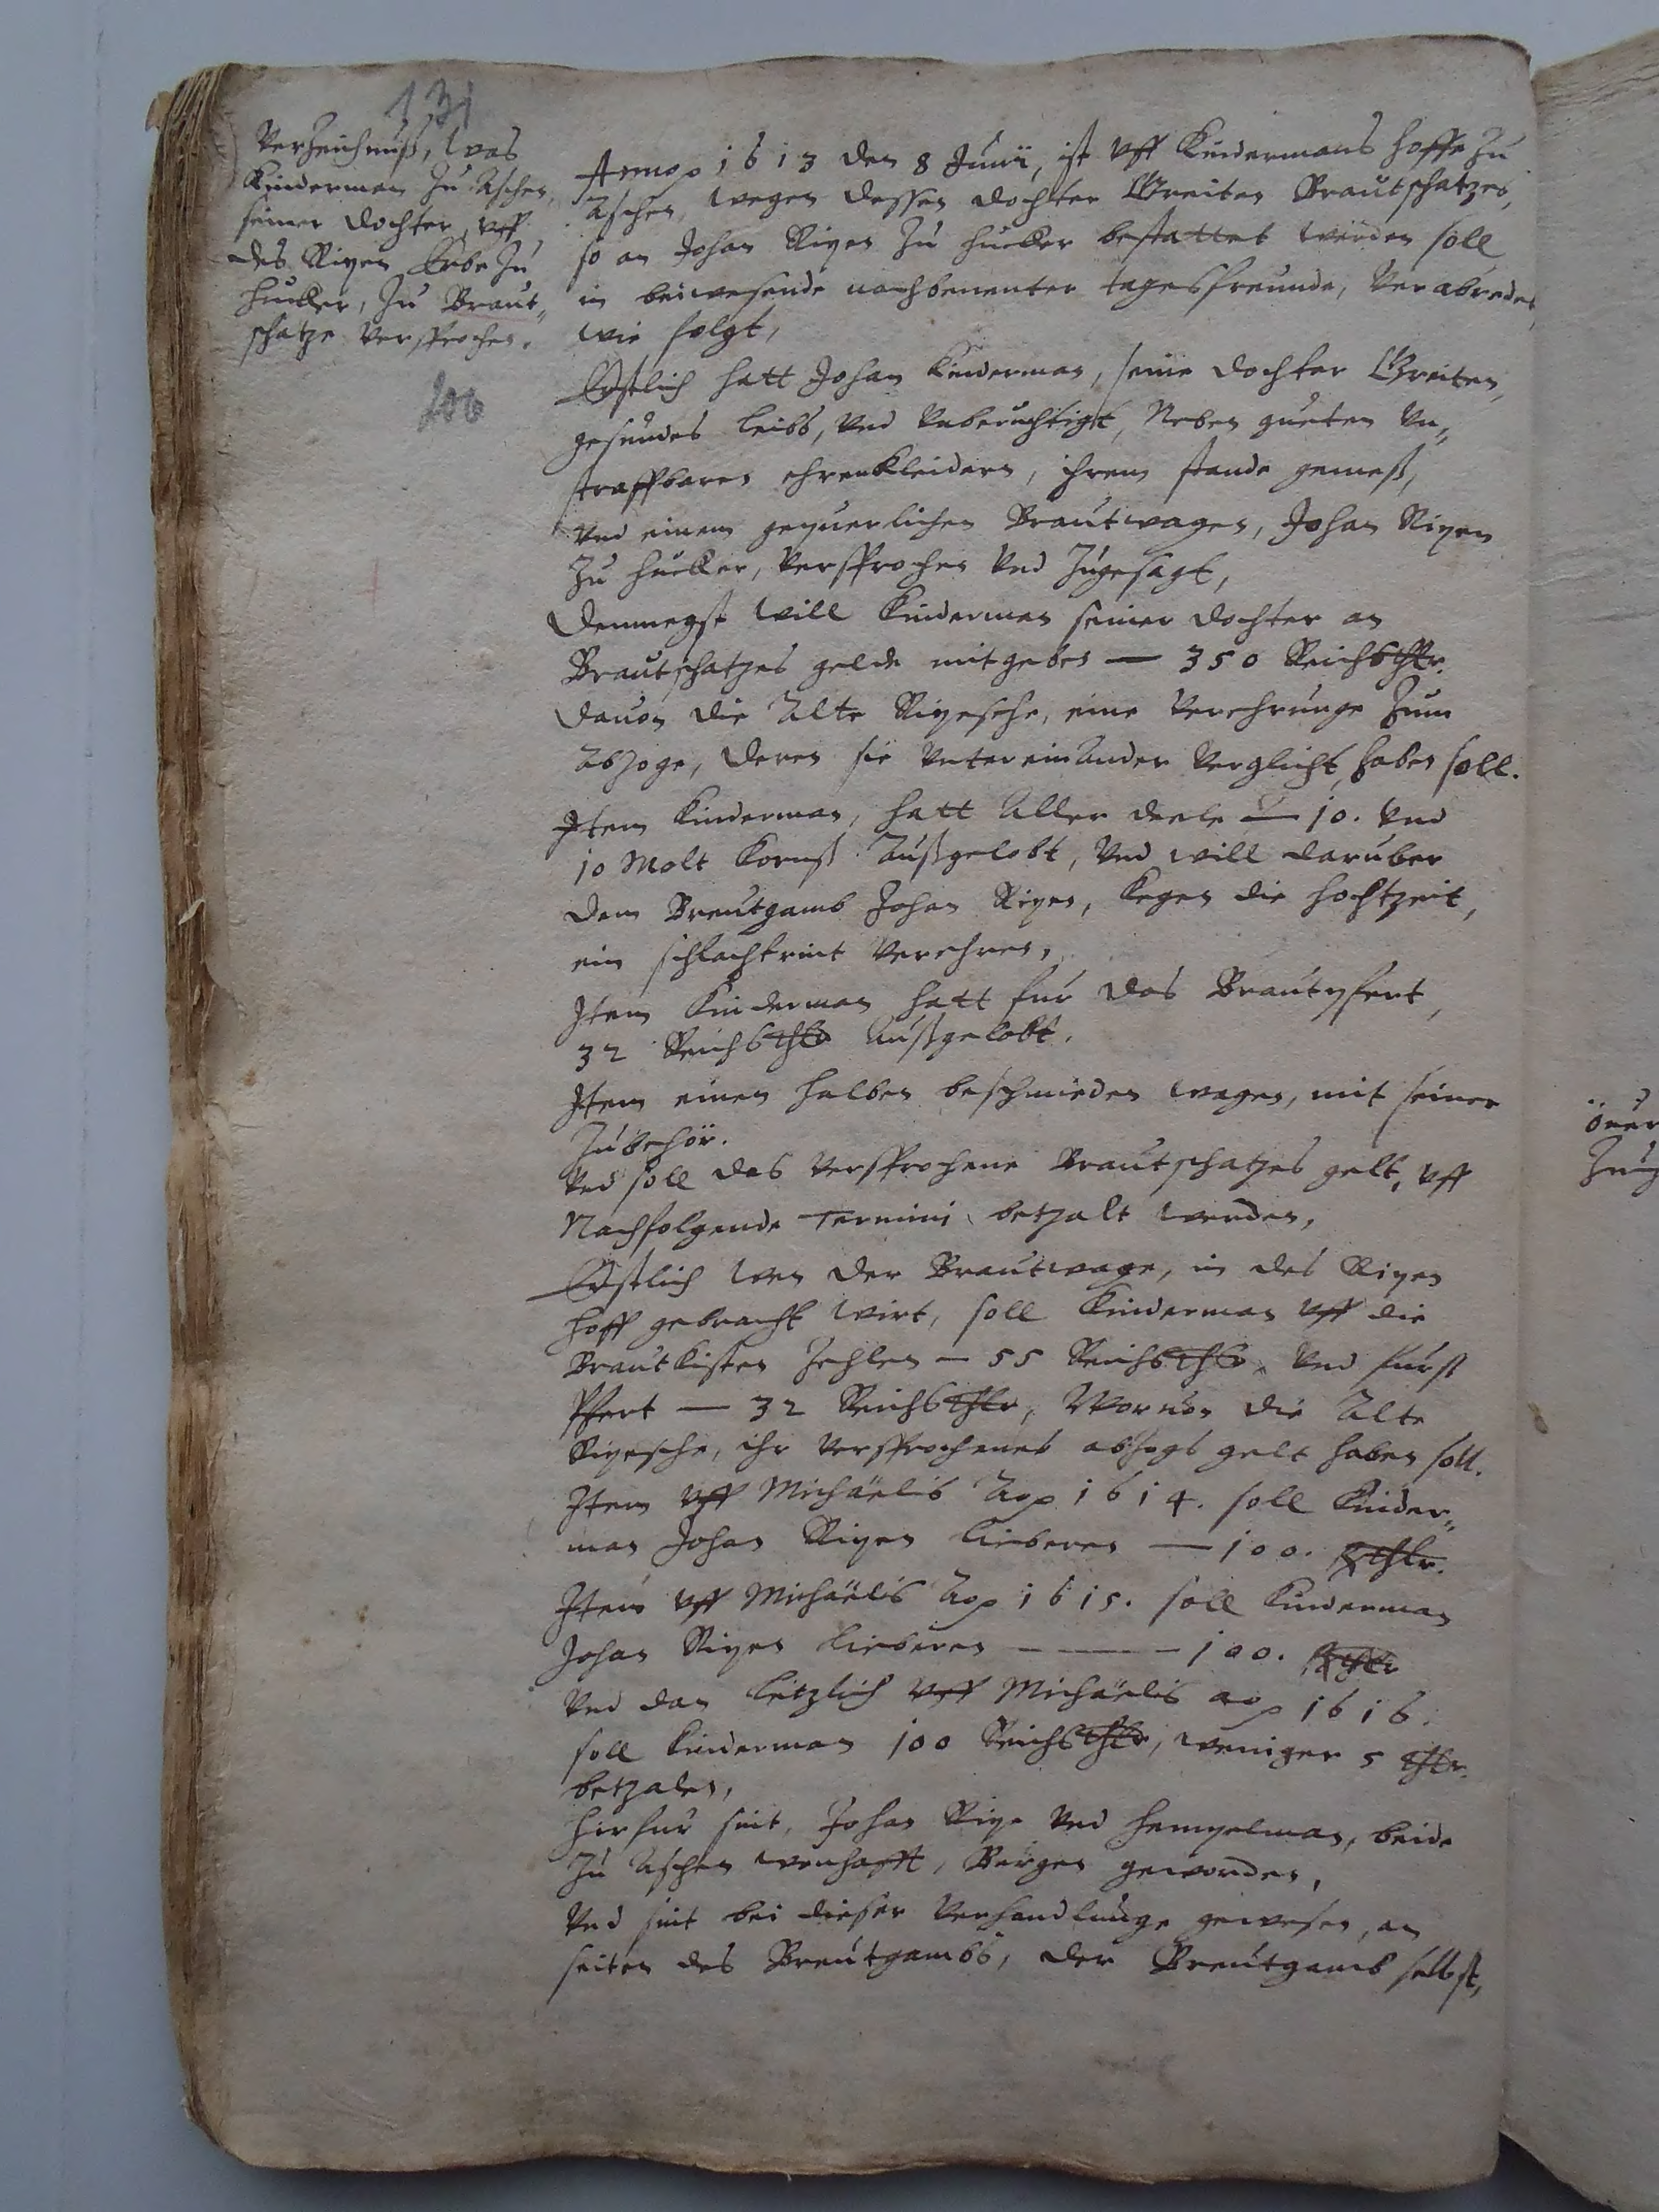 131
Verzeichnuß, was
Kinderman zu Aschen,
seiner dochter, vff
des Ripen Erbe zu
Hucker, zu Braut„
schatze versprochen.
206
Anno 1613 den 8 Junii, ist vff Kindermans Hoffe zu
Aschen, wegen dessen dochter Greiten Brautschatzes,
so an Johan Ripen zu Hucker bestattet werden soll
in beiwesende nachbenenter tagesfreunde, verabredet,
wie folgt,
Erstlich hatt Johan Kinderman, seine dochter Greiten,
gesundes leibs, vnd vnberuchtigt, Neben gueten vn„
straffbaren ehrenkleidern, ihrem stande gemeß,
vnd einem gepuerlichen Brautwagen, Johan Ripen
zu Hucker, versprochen vnd zugesagt,
Demnegst will Kinderman seiner dochter an
Brautschatzes gelde mitgeben — 350 Reichsthlr.
dauon die Alte Ripesche, eine verehrunge zum
Abzoge, deren sie vntereinander verglicht, haben soll.
Item Kinderman, hatt Aller deele — 10. vnd
10 Molt Kornß Außgelobt, vnd will daruber
dem Breutgamb Johan Ripen, kegen die hochtzeit,
ein schlachtrint verehren,
Item Kinderman hatt fur das Brautpfert,
32 Reichsthlr Außgelobt.
Item einen halben beschmieden wagen, mit seiner
zubehör.
Vnd soll das versprochene Brautschatzes gelt, vff
Nachfolgende Termini betzalt werden,
Erstlich wen der Brautwage, in des Ripen
Hoff gebracht wirt, soll Kinderman vff die
Brautkisten zehlen — 55 Reichsthlr, vnd furß
Pfert — 32 Reichsthlr, Woruon die Alte
Ripesche, ihr versprochenes abzogs gelt haben soll.
Item vff Michaëlis Ao 1614. soll Kinder„
man Johan Ripen lieberen — 100. Rthlr.
Item vff Michaëlis Ao 1615. soll Kinderman
Johan Ripen lieberen — — — 100. Rthlr
Vnd dan letzlich vff Michaëlis ao 1616.
soll Kinderman 100 Reichsthlr, weniger 5 thlr.
betzalen,
Hirfur sint, Johan Ripe vnd Hempelman, beide
zu Aschen wonhafft, Burgen geworden,
Vnd sint bei dieser verhandlunge gewesen, an
seiten des Breutgambs, der Breutgamb selbst,